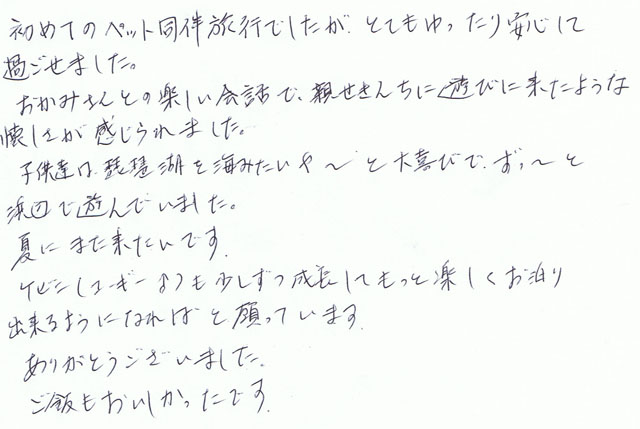 初めてのペット同伴旅行でしたが、とてもゆったり安心して
過ごせました。
おかみさんとの楽しい会話で、親せきんちに遊びに来たような
懐しさが感じられました。
子供達は琵琶湖を海みたいや～と大喜びで、ずっ～と
浜辺で遊んでいました。
夏にまた来たいです。
ケビン(コーギー♂)も少しずつ成長してもっと楽しくお泊り
出来るようになればと願っています。
ありがとうございました。
ご飯もおいしかったです。